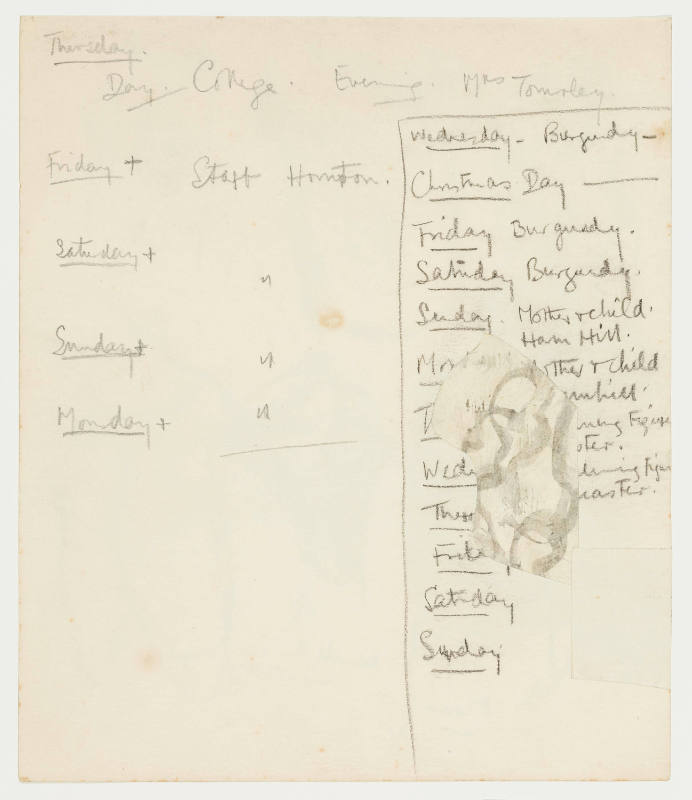 Thursday.
Day. College. Evening. Mrs Tomorley.
Friday + Start Hornton.
Saturday + "
Sunday + "
Monday + "
Wednesday - Burgundy -
Christmas Day —
Friday Burgundy.
Saturday Burgundy.
Sunday. Mother & child.
Ham Hill.
Mother & child
Figure
Figur
Friday
Saturday
Sunday